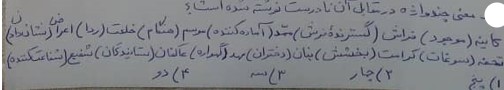 معنی چند واژه در مقابل آن نادرست نوشته شده است؟
کاینه (موجود) فراش (گسترندهٔ فرش) ممد (آماده‌کننده) موسم (هنگام) خلعت (ردا) اعراض (نشان‌دادن)
تحفه (سوغات) کرامت (بخشش) بنان (دختران) مهد (گهواره) عاکفان (ستایندگان) شفیع (شفاعت‌کننده)
۱) پنج ۲) چهار ۳) سه ۴) دو